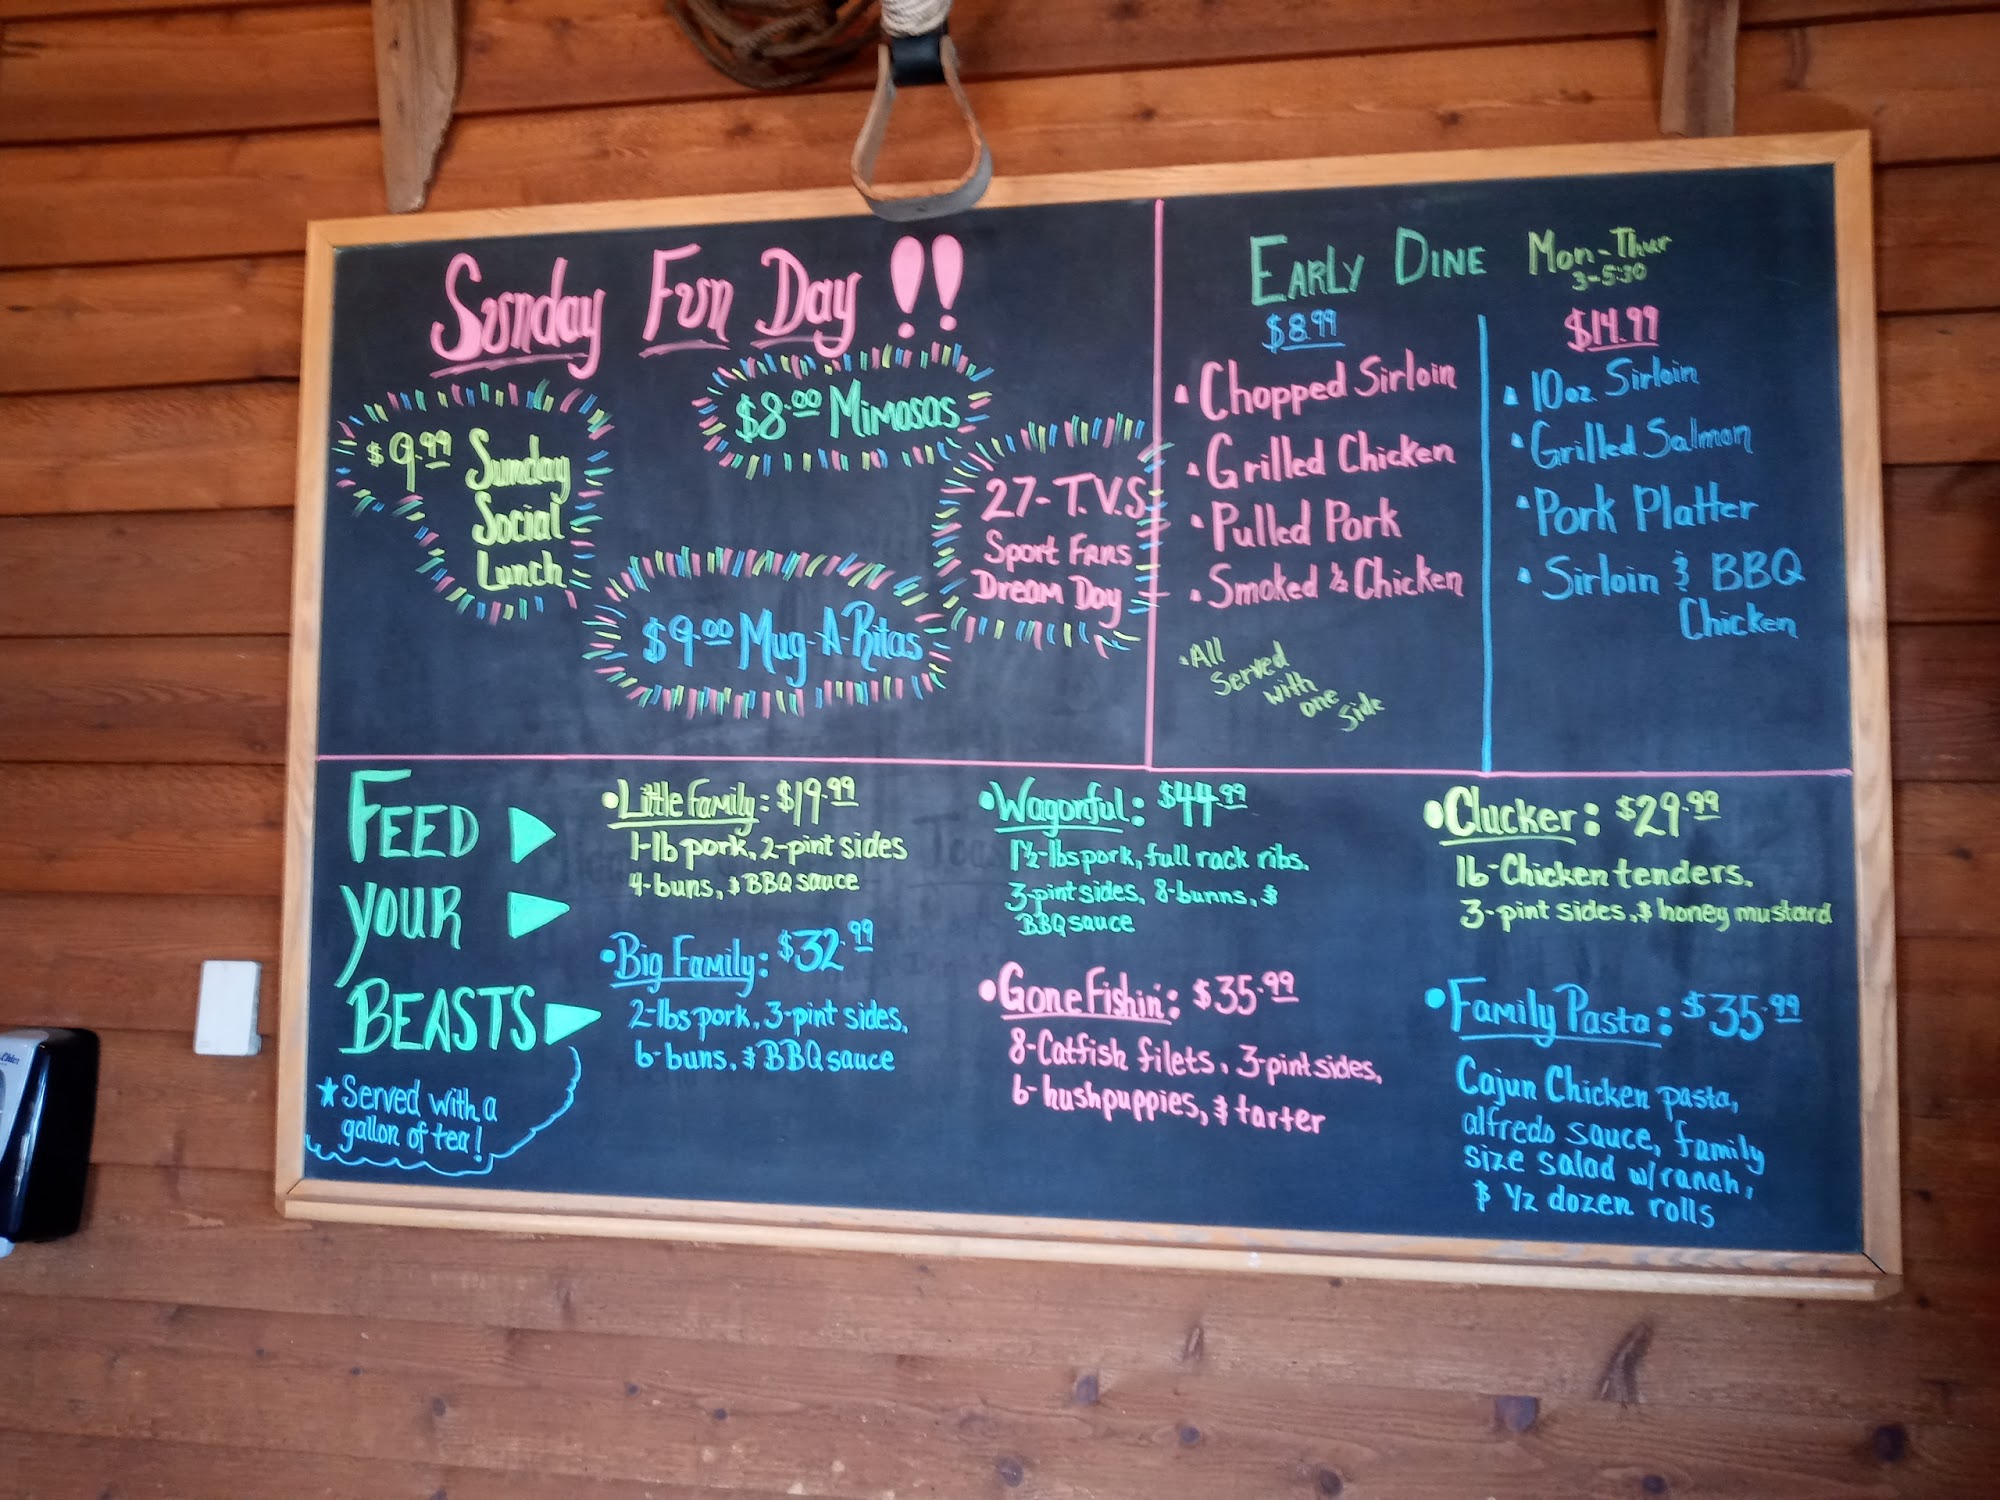 Sunday Fun Day !!
$9.99 Sunday
Social
Lunch
$8.00 Mimosas
27-T.V.S
Sport Fans
Dream Day
$9.00 Mug-A-Ritas
EARLY DINE Mon-Thur
3-5:30
$8.99
Chopped Sirloin
Grilled Chicken
Pulled Pork
Smoked ½ Chicken
All
Served
with
one
side
$14.99
10oz. Sirloin
Grilled Salmon
Pork Platter
Sirloin & BBQ
Chicken
FEED
YOUR
BEASTS
★Served with a
gallon of tea!
•Little Family: $19.99
1-lb pork, 2-pint sides
4-buns, & BBQ sauce
•Big Family: $32.99
2-lbs pork, 3-pint sides,
6-buns, & BBQ sauce
•Wagonful: $44.99
1½-lbs pork, full rack ribs.
3-pint sides, 8-bunns, &
BBQ sauce
•Gone Fishin': $35.99
8-Catfish filets, 3-pint sides,
6-hushpuppies, & tarter
•Clucker: $29.99
1lb-Chicken tenders.
3-pint sides, & honey mustard
•Family Pasta: $35.99
Cajun Chicken pasta,
alfredo sauce, family
size salad w/ranch,
& ½ dozen rolls